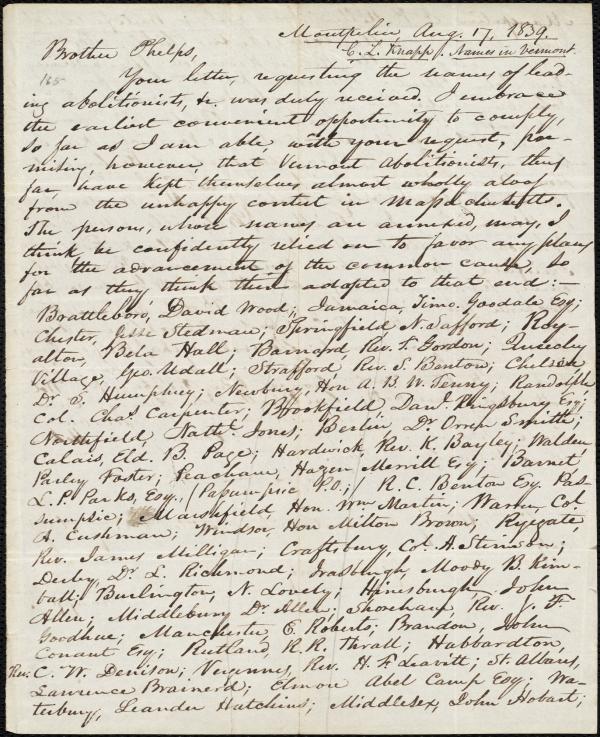 Montpelier, Aug. 17, 1839.
Brother Phelps,
C. L. Knapp/. Names in Vermont.
Your letter, requesting the names of lead-
ing abolitionists, &c. was duly received. I embrace
the earliest convenient opportunity to comply,
so far as I am able with your request, pre-
mising, however, that Vermont abolitionists, thus
far, have kept themselves almost wholly aloof
from the unhappy contest in Massachusetts.
The persons, whose names are annexed, may, I
think, be confidently relied on to favor any plans
for the advancement of the common cause, so
far as they think them adapted to that end:—
Brattleboro, David Wood; Jamaica, Timo. Goodale Esq;
Chester, Jesse Stedman; Springfield N. Safford; Roy-
alton, Bela Hall; Barnard Rev. T. Gordon; Queechy
Village, Geo. Udall; Strafford Rev. S. Benton; Chelsea
Dr. S. Humphrey; Newbury, Hon A. B. W. Tenny; Randolph
Col. Chas Carpenter; Brookfield Danl. Kingsbury Esq;
Northfield, Nathl. Jones; Berlin, Dr. Orren Smith;
Calais, Eld. B. Page; Hardwick, Rev. K. Bayley; Walden
Parley Foster; Peacham, Hazen Merrill Esq; Barnet,
L. P. Parks, Esq., (Passumpsic P.O.;/ R. C. Benton Esq. Pas-
sumpsic; Marshfield, Hon. Wm Martin; Warren, Col.
H. Cushman; Windsor, Hon Milton Brown; Ryegate,
Rev. James Milligan; Craftsbury, Col. A. Stimson;
Derby, Dr. L. Richmond; Irasburgh, Moody B. Kim-
ball; Burlington, N. Lovely; Hinesburgh John
Allen; Middlebury Dr. Allen; Shoreham, Rev. J. F.
Goodhue; Manchester, E. Roberts; Brandon, John
Conant Esq; Rutland, R. R. Thrall; Hubbardton,
Rev. C. W. Denison; Vergennes, Rev. H. F. Leavitt; St. Albans,
Lawrence Brainerd; Elmore Abel Camp Esq; Wa-
terbury, Leander Hutchins; Middlesex, John Hobart;